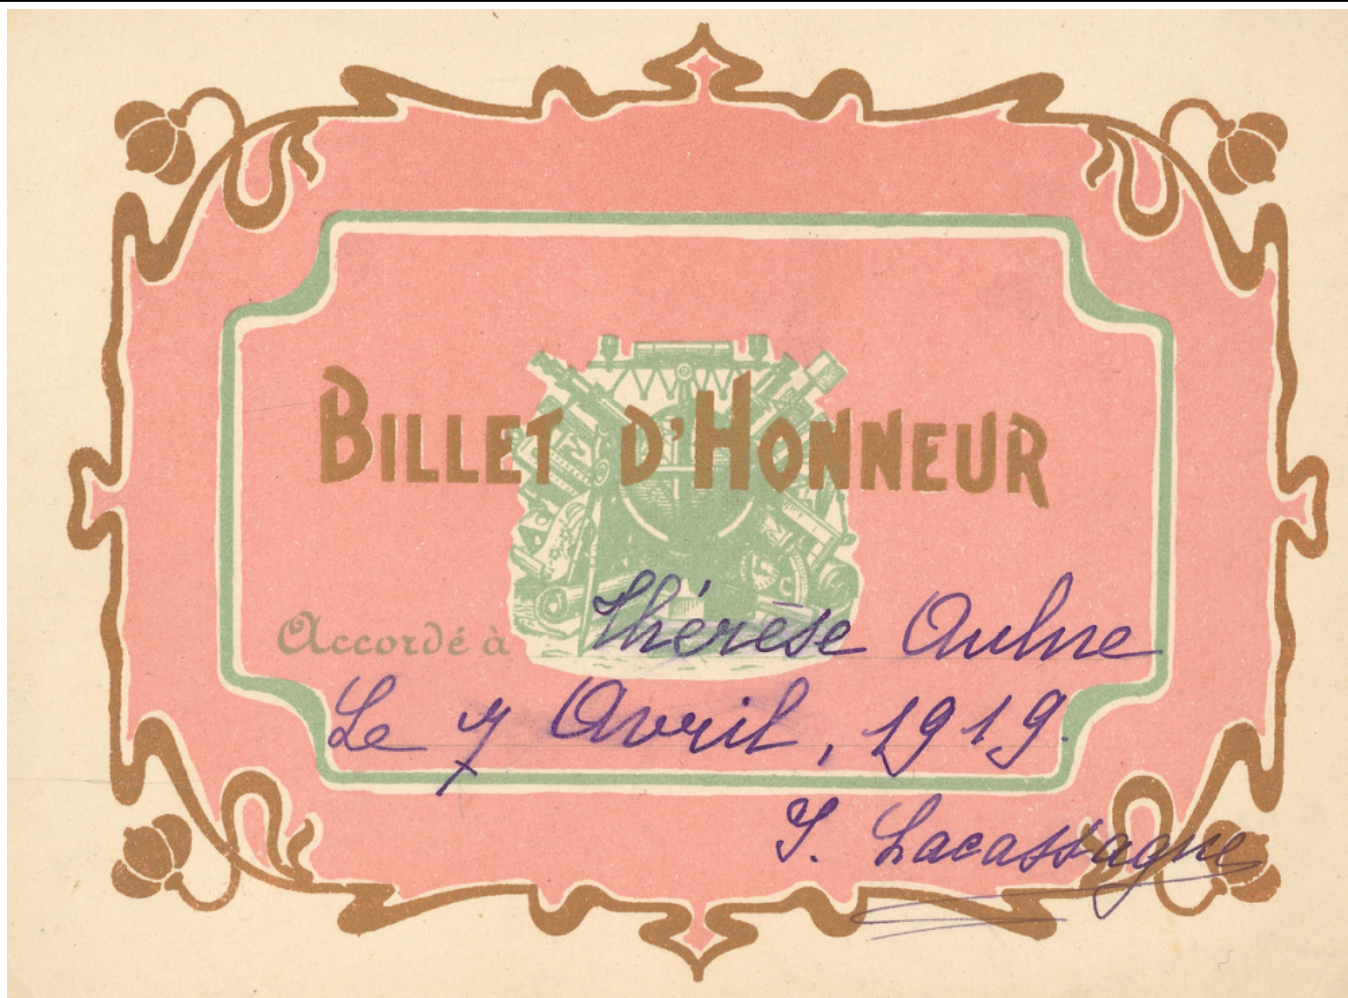 BILLET D'HONNEUR
Accordé à Thérèse Aulne
Le 7 Avril, 1919.
Y. Lacassagne